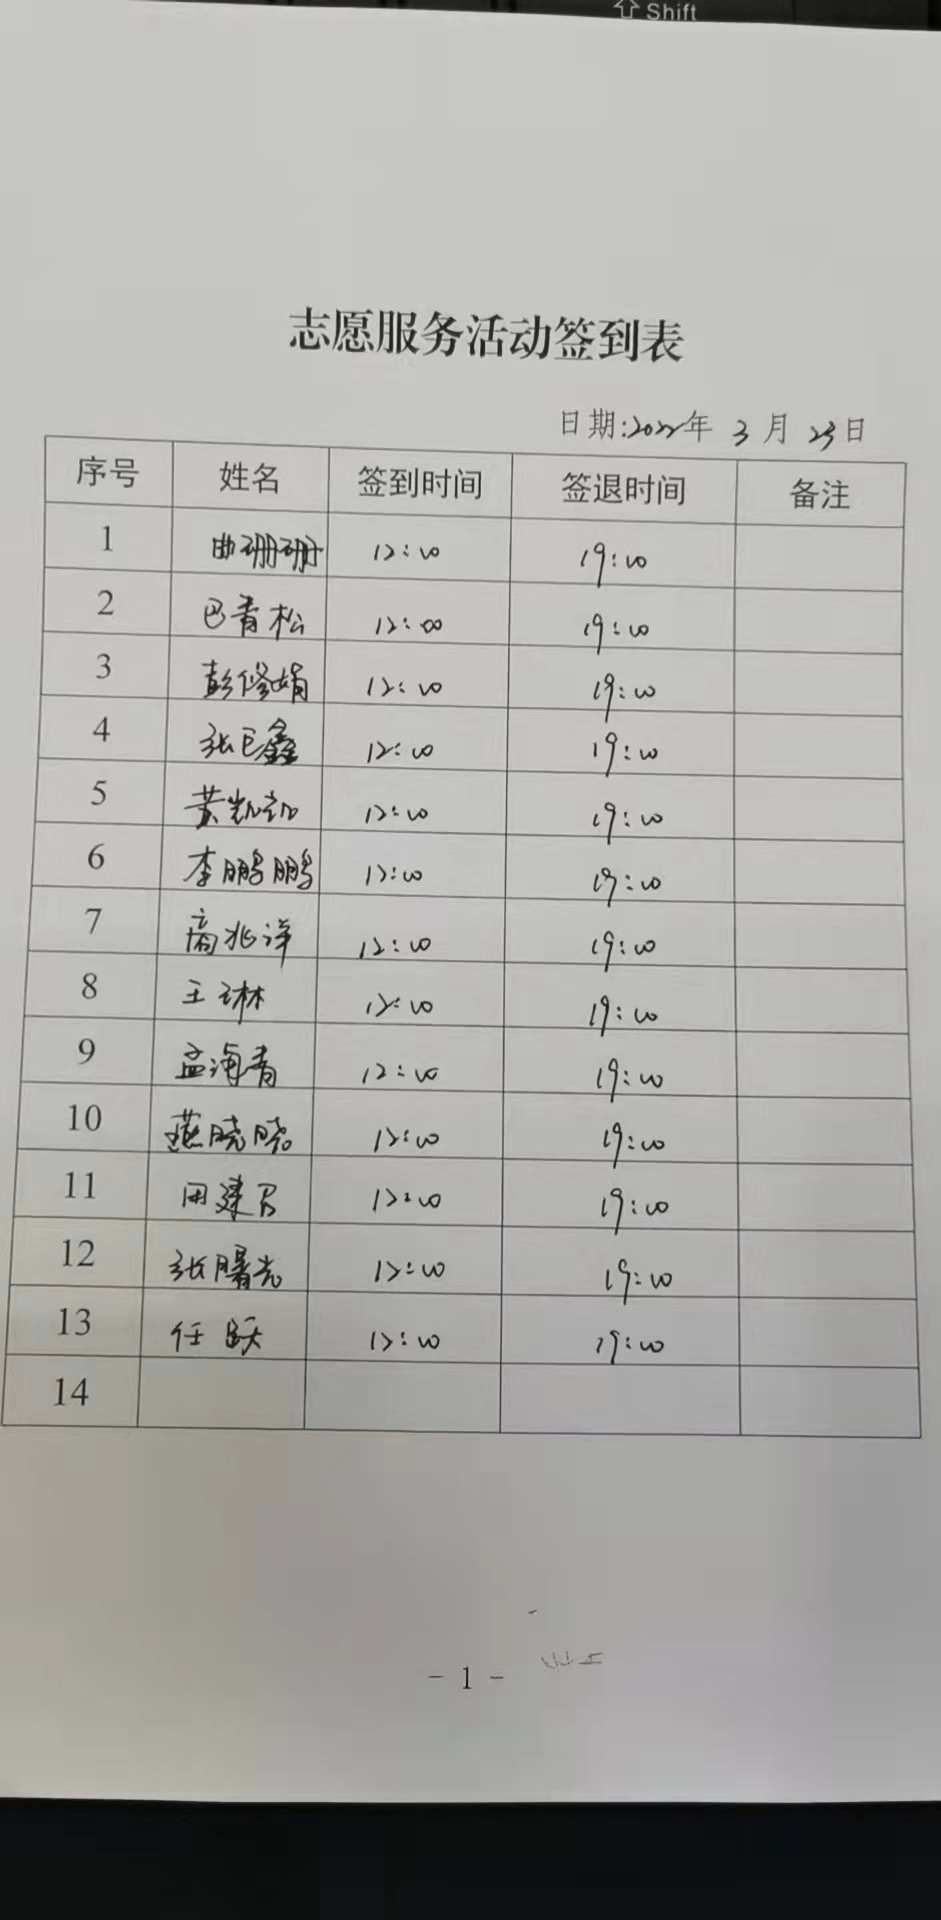 ⇧ Shift
志愿服务活动签到表
日期:2022年 3 月 23日
序号 姓名 签到时间 签退时间 备注
1 曲珊珊 12:00 19:00
2 巴青松 12:00 19:00
3 彭修娟 12:00 19:00
4 张巨鑫 12:00 19:00
5 黄凯凯 12:00 19:00
6 李鹏鹏 12:00 19:00
7 高兆洋 12:00 19:00
8 王琳 12:00 19:00
9 孟海青 12:00 19:00
10 燕晓晓 12:00 19:00
11 建 12:00 19:00
12 张曙光 12:00 19:00
13 任跃 12:00 19:00
14
- 1 -